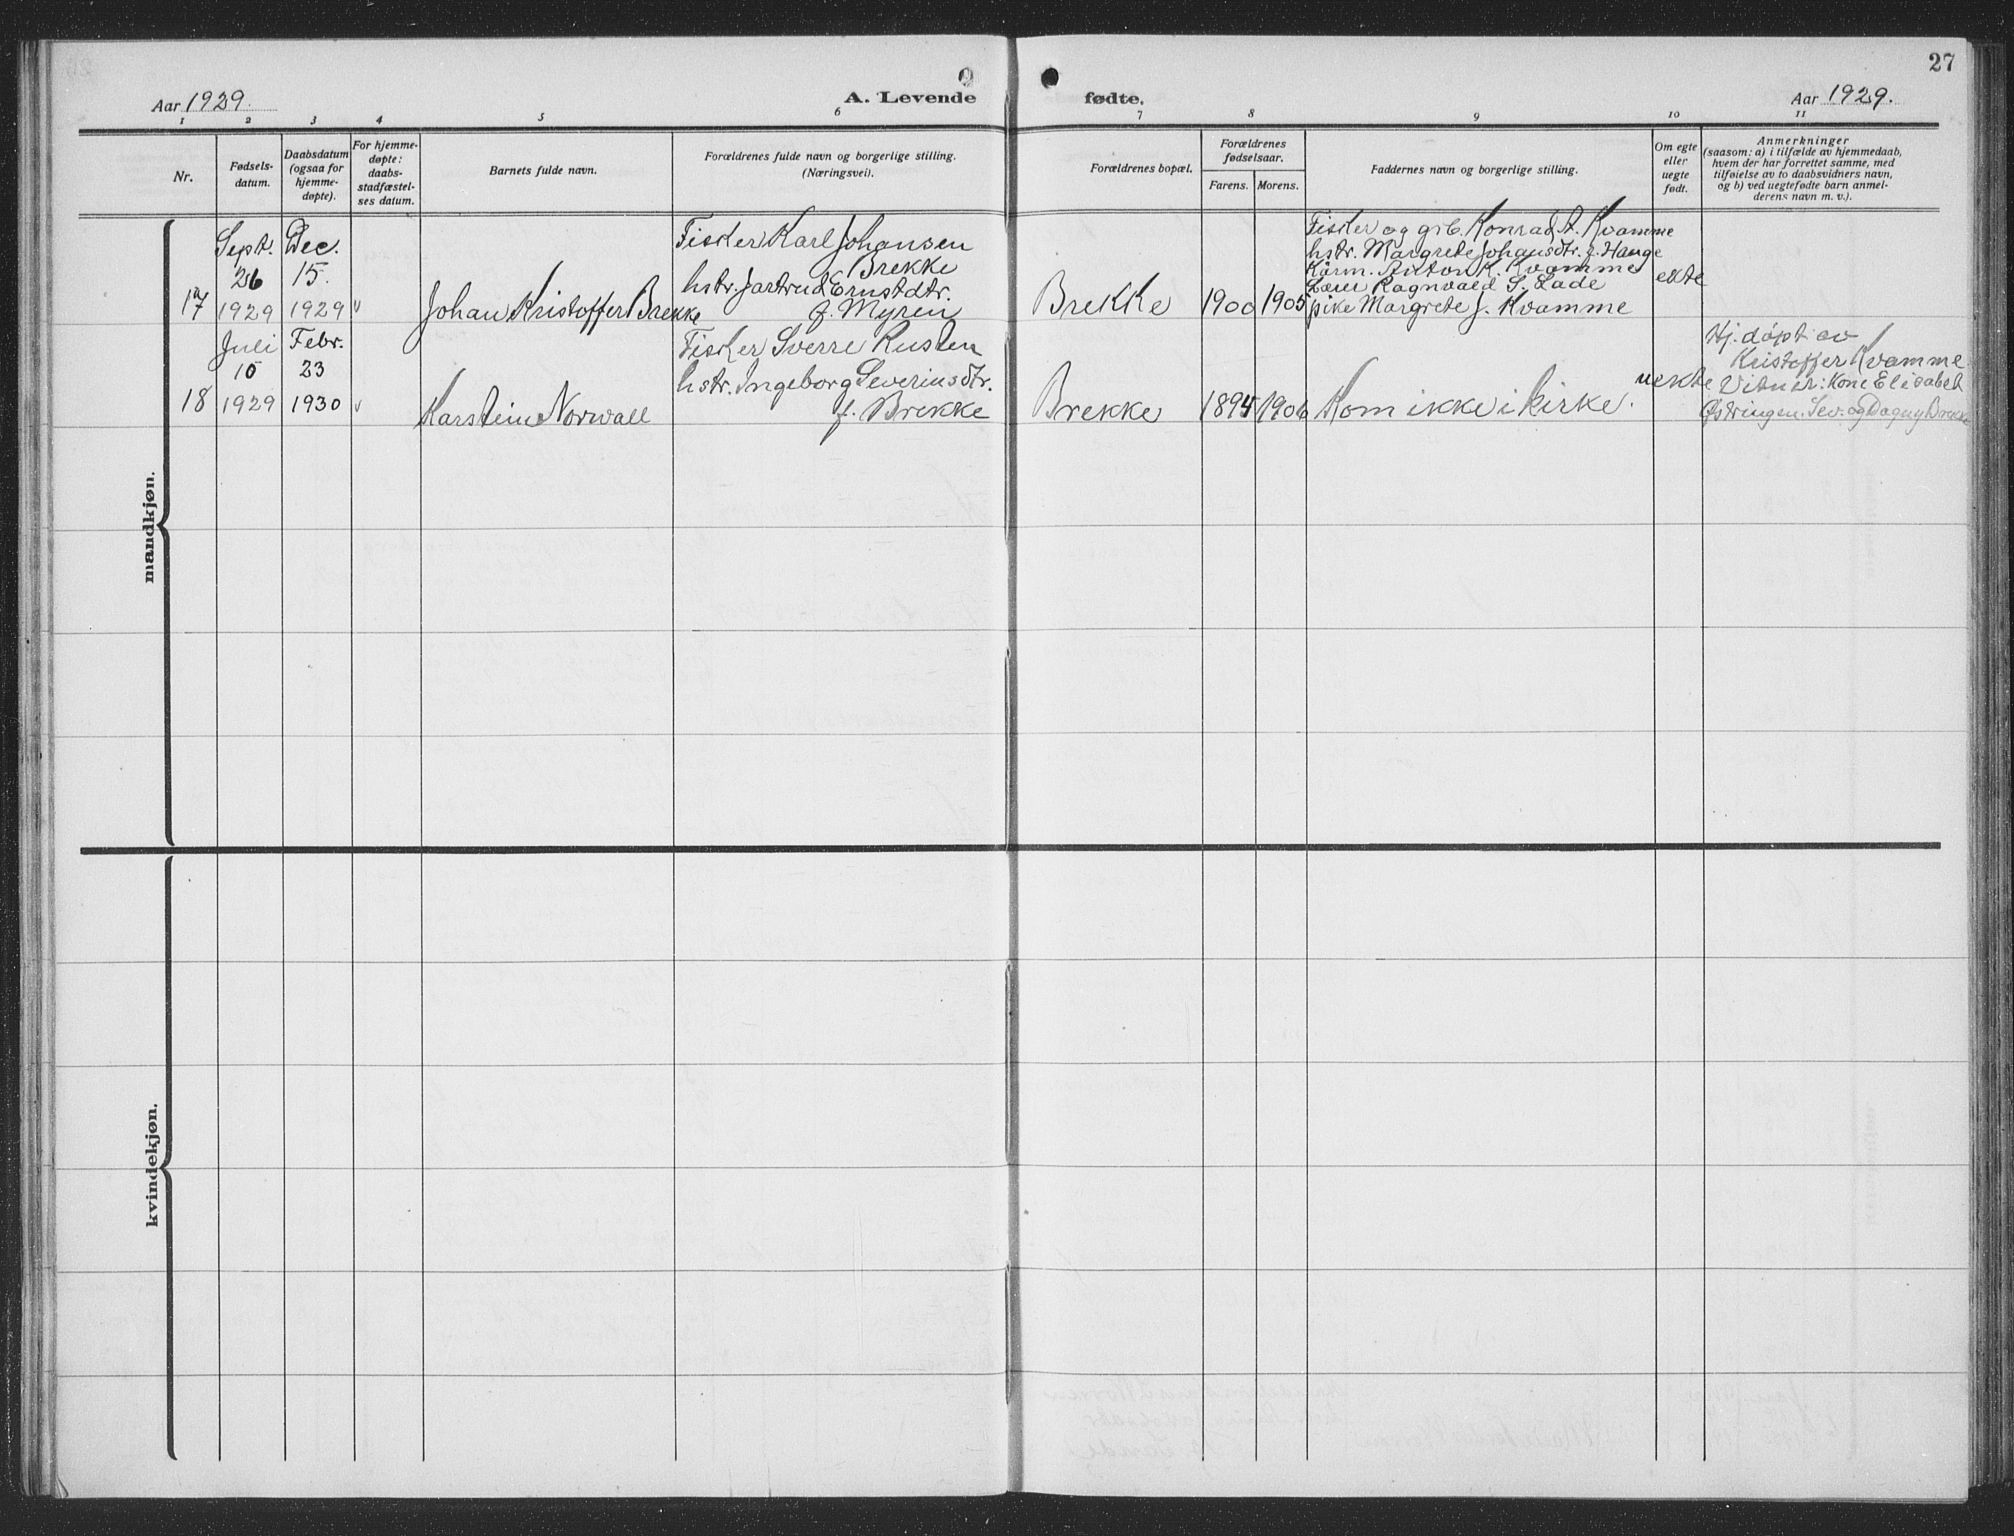 27
Aar 1929.
A. Levende
fødte.
Aar 1929.
1 2 3 4 5 6 7 8 9 10 11
Nr.
Fødsels-
datum.
Daabsdatum
(ogsaa for
hjemme-
døpte).
For hjemme-
døpte:
daabs-
stadfæstel-
ses datum.
Barnets fulde navn.
Forældrenes fulde navn og borgerlige stilling.
(Næringsvei).
Forældrenes bopæl.
Forældrenes
fødselsaar.
Farens. Morens.
Faddernes navn og borgerlige stilling.
Om egte
eller
uegte
født.
Anmerkninger
(saasom: a) i tilfælde av hjemmedaab,
hvem der har forrettet samme, med
tilføielse av to daabsvidners navn,
og b) ved uegtefødte barn anmel-
derens navn m. v.).
mandkjøn.
17
Sept.
26
1929
Dec.
15.
1929
Johan Kristoffer Brekke
Fisker Karl Johansen
Brekke
hstr. Jartrud Ernstdtr.
f. Myren
Brekke
1900
1905
Fisker og grb. Konrad A. Kvamme
hstr. Margrete Johansdtr. f. Hauge
Kårm. Anton K. Kvamme
Ragnvald S. Lade
pike Margrete J. Kvamme
ekte
18
Juli
10
1929
Febr.
23
1930
Karstein Norwall
Fisker Sverre Rusten
hstr. Ingeborg Severinsdtr.
f. Brekke
Brekke
1894
1906
Kom ikke i kirke.
uekte
Hj. døpt av
Kristoffer Kvamme
Vitner: Kone Elisabet
Østringen. Sev. og Dagny Brekke
kvindekjøn.